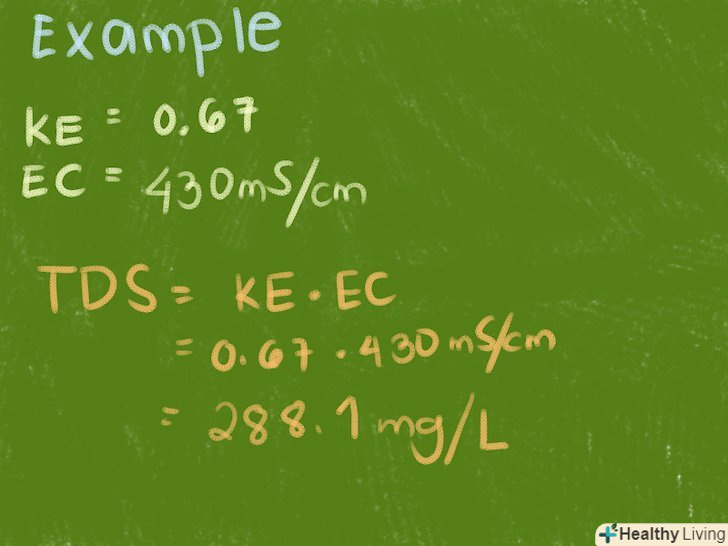 Example
KE = 0.67
EC = 430mS/cm
TDS = KE · EC
= 0.67 · 430mS/cm
= 288.1 mg/L
Healthy Living